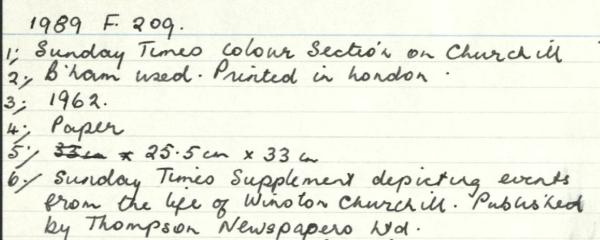 1989 F. 209.
1; Sunday Times colour Section on Churchill
2; B'ham used. Printed in London.
3; 1962.
4; Paper
5; 33cm x 25.5 cm x 33 cm
6; Sunday Times Supplement depicting events
from the life of Winston Churchill. Published
by Thompson Newspapers Ltd.